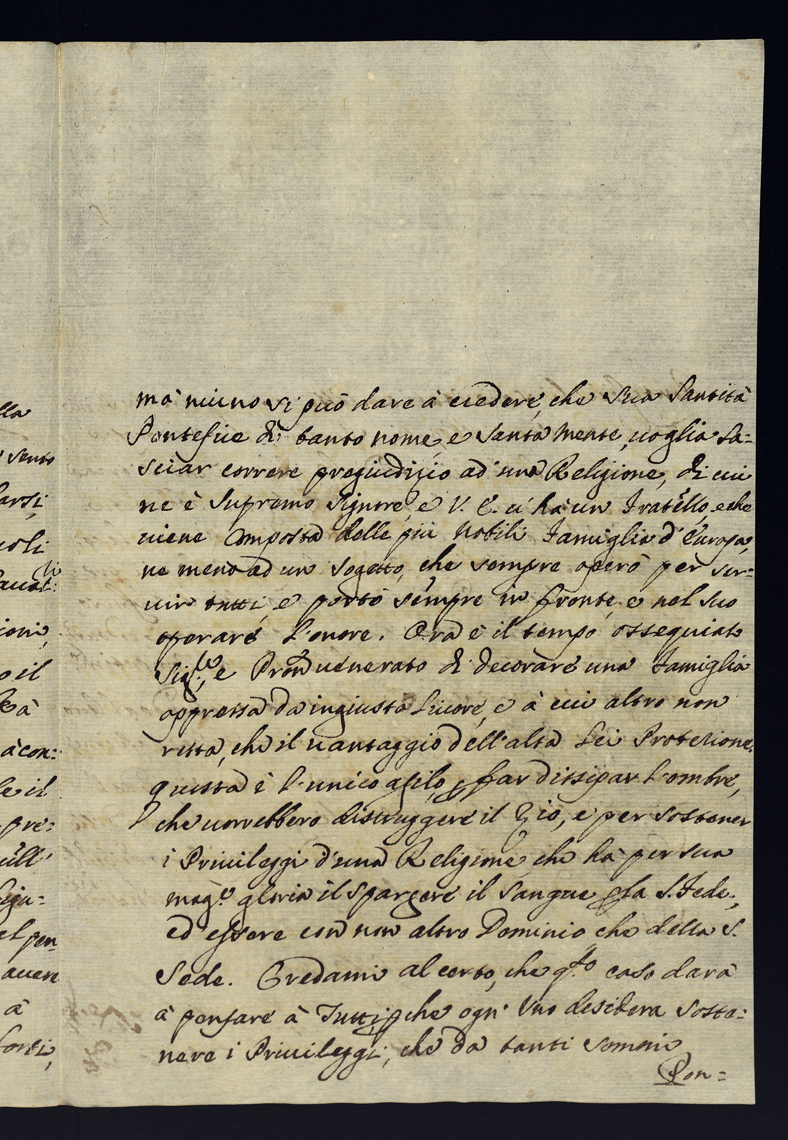 lla
sento
arsi,
uoli
ioni,
o il
à
à con:
le il
pre:
ull'
el pen
auere
à
forti,
mà niuno si può dare à credere, che Sua Santità
Pontefice di tanto nome, e Santa mente, uoglia la=
sciar correre pregiudizio ad' una Religione, di cui
ne è Supremo Signore, e V. E. u' hà un Fratello, e che
uiene composta delle più Nobili Famiglie d' Europa,
ne meno ad un Sogetto, che sempre operò per ser=
uir tutti, e portò sempre in fronte, e nel suo
operare l'onore. Ora è il tempo ossequiato
Sig.re, e Pron uenerato di decorare una Famiglia
oppressa da ingiusto Liuore, e à cui altro non
resta, che il uantaggio dell'alta Lei Protezione.
questa è l'unico asilo p far dissipar l'ombre,
che uorrebbero distruggere il Zio, e per sostener
i Privileggi d'una Religione, che hà per sua
magg.e gloria il spargere il Sangue p la S. Fede,
ed essere con non altro Dominio che della S.
Sede. Credami al certo, che q.sto caso darà
à pensare à Tutti p che ogn' Uno desidera soste=
nere i Privileggi, che da tanti Sommi
Pon=